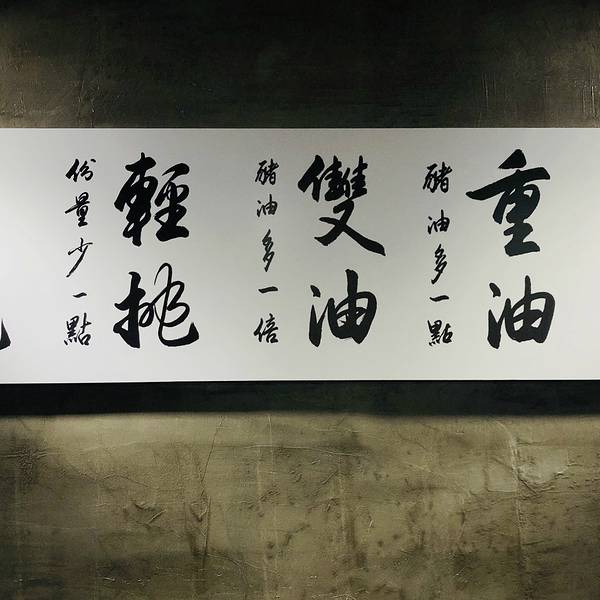 重油
豬油多一點
雙油
豬油多一倍
輕挑
份量少一點